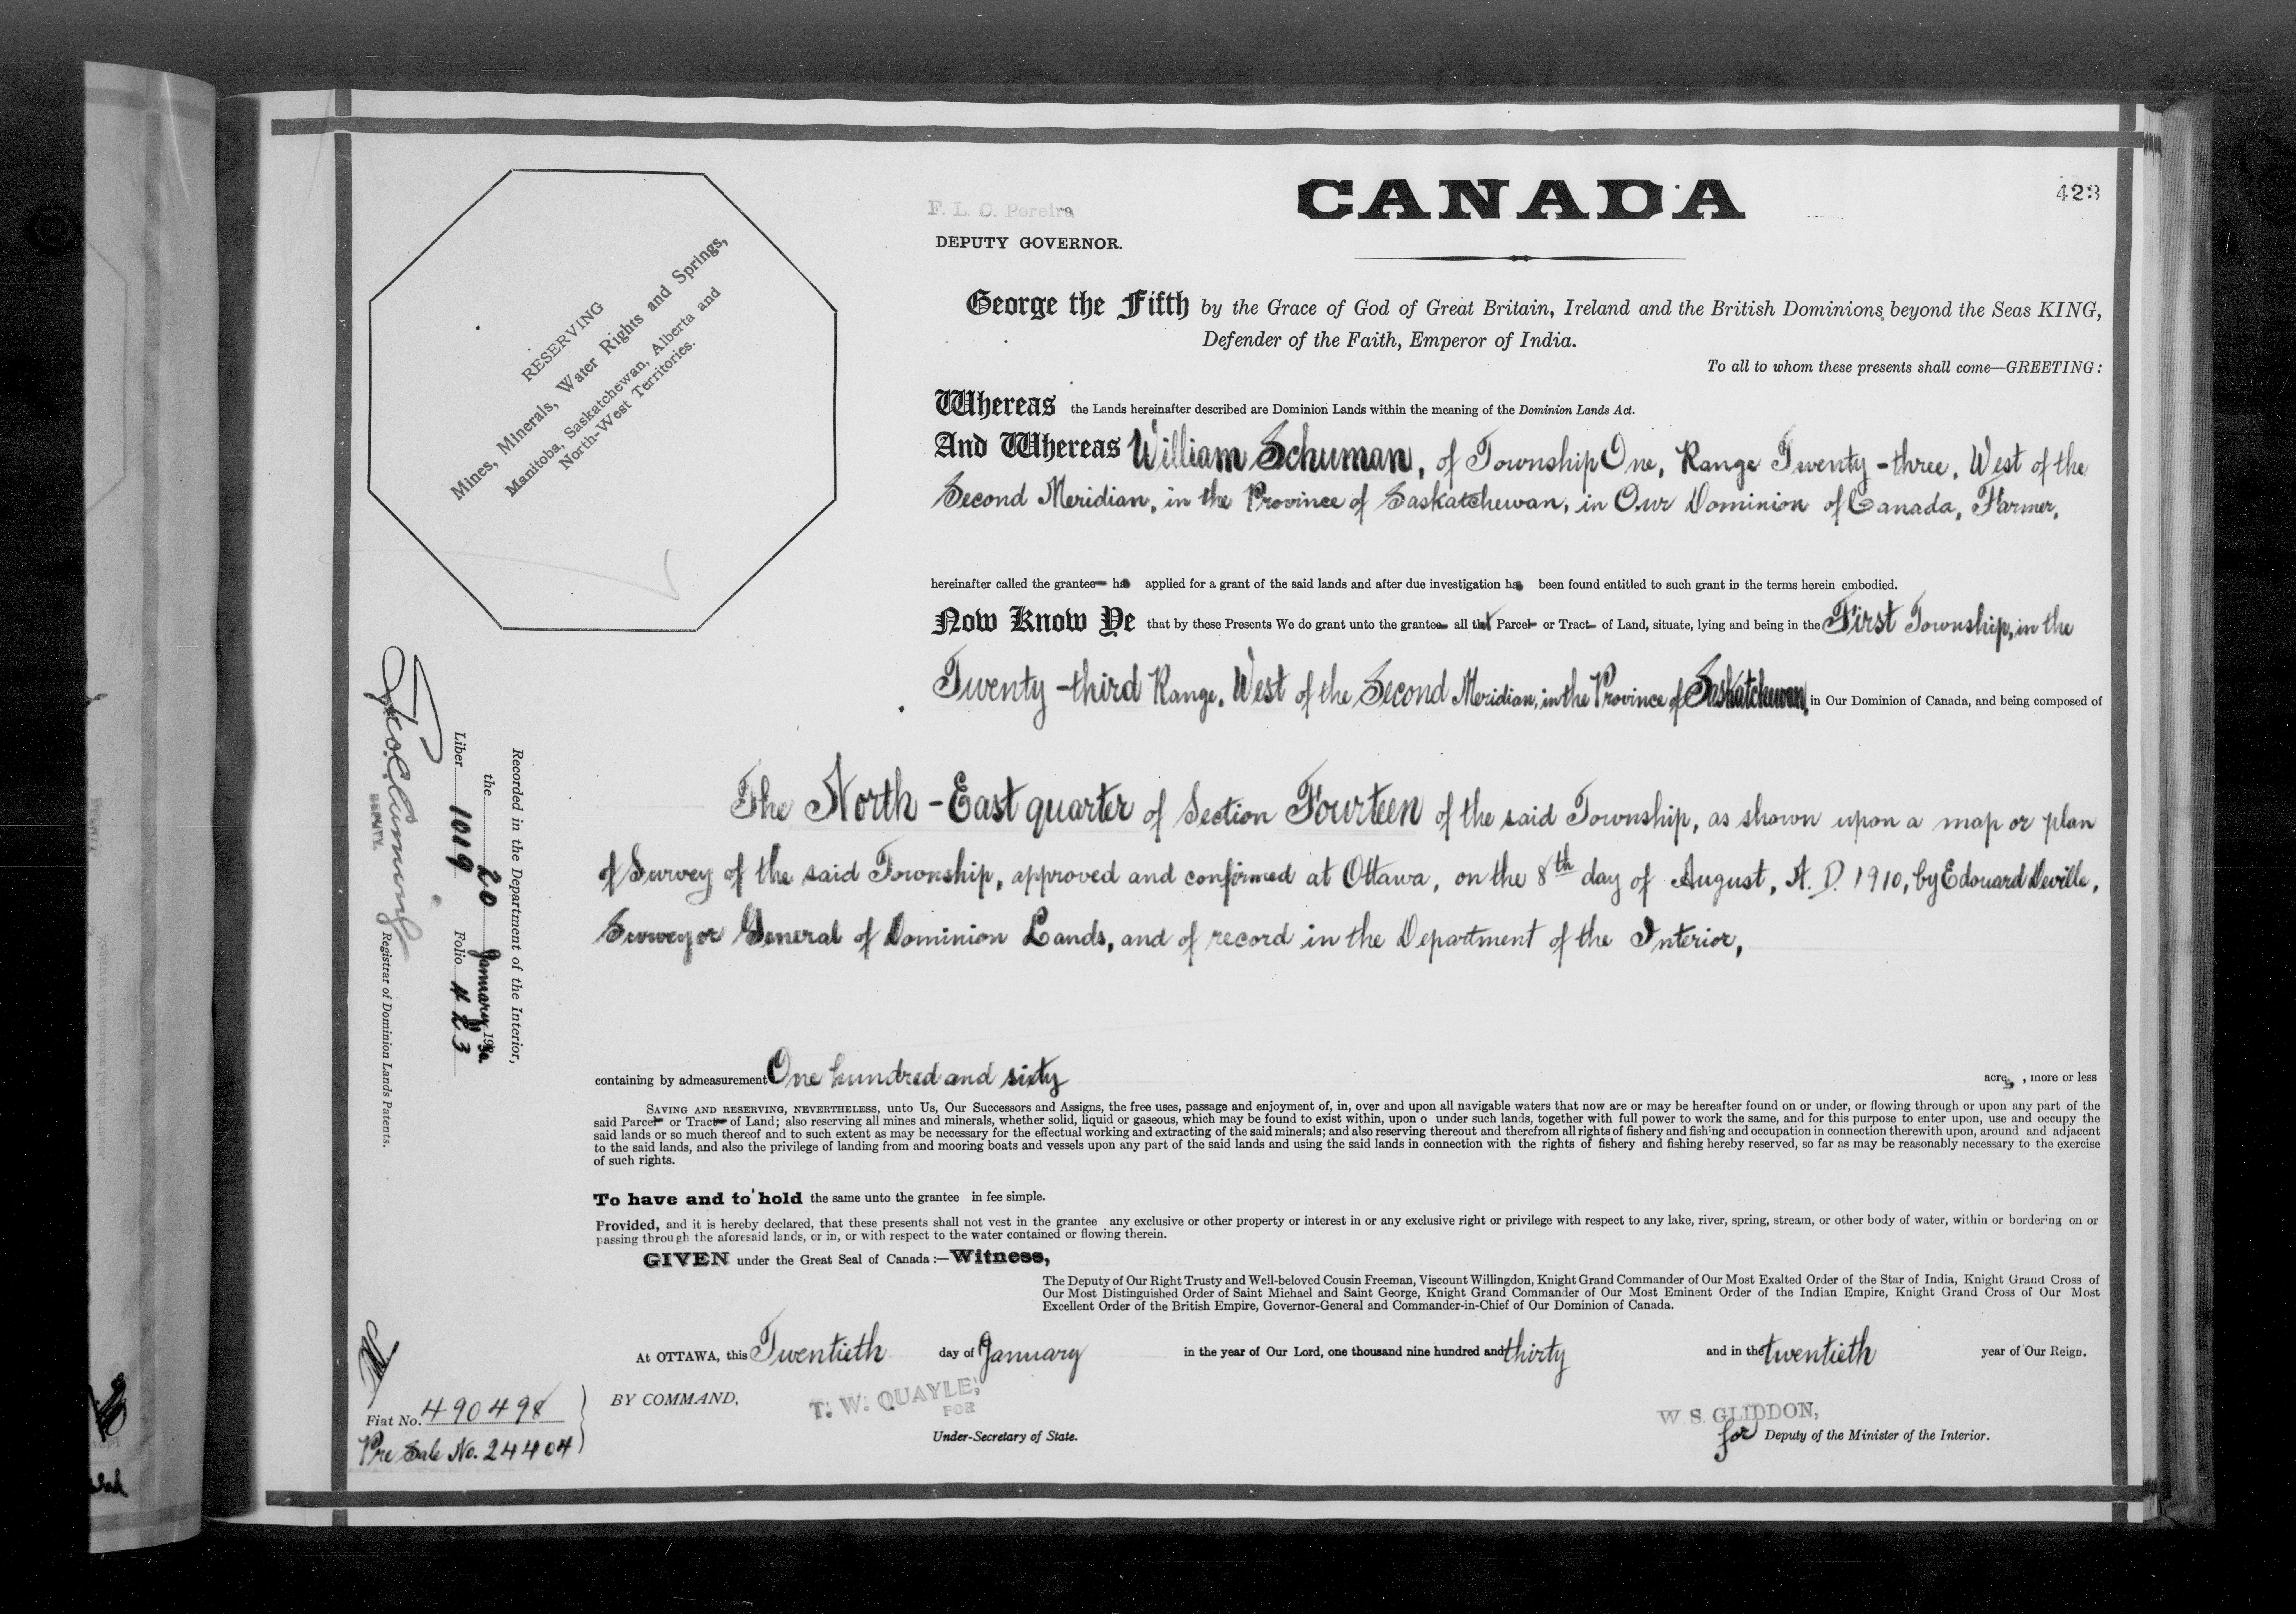 F. L. C. Pereira
DEPUTY GOVERNOR.
CANADA
423
RESERVING
Mines, Minerals, Water Rights and Springs,
Manitoba, Saskatchewan, Alberta and
North-West Territories.
George the Fifth by the Grace of God of Great Britain, Ireland and the British Dominions beyond the Seas KING,
Defender of the Faith, Emperor of India.
To all to whom these presents shall come—GREETING:
Whereas the Lands hereinafter described are Dominion Lands within the meaning of the Dominion Lands Act.
And Whereas William Schuman, of Township One, Range Twenty-three, West of the
Second Meridian, in the Province of Saskatchewan, in Our Dominion of Canada, Farmer,
hereinafter called the grantee has applied for a grant of the said lands and after due investigation has been found entitled to such grant in the terms herein embodied.
Now Know Ye that by these Presents We do grant unto the grantee all that Parcel or Tract of Land, situate, lying and being in the First Township, in the
Twenty-third Range, West of the Second Meridian, in the Province of Saskatchewan, in Our Dominion of Canada, and being composed of
The North-East quarter of Section Fourteen of the said Township, as shown upon a map or plan
of Survey of the said Township, approved and confirmed at Ottawa, on the 8th day of August, A. D. 1910, by Edouard Deville,
Surveyor General of Dominion Lands, and of record in the Department of the Interior,
containing by admeasurement One hundred and sixty acres, more or less
SAVING AND RESERVING, NEVERTHELESS, unto Us, Our Successors and Assigns, the free uses, passage and enjoyment of, in, over and upon all navigable waters that now are or may be hereafter found on or under, or flowing through or upon any part of the
said Parcel or Tract of Land; also reserving all mines and minerals, whether solid, liquid or gaseous, which may be found to exist within, upon o under such lands, together with full power to work the same, and for this purpose to enter upon, use and occupy the
said lands or so much thereof and to such extent as may be necessary for the effectual working and extracting of the said minerals; and also reserving thereout and therefrom all rights of fishery and fishing and occupation in connection therewith upon, around and adjacent
to the said lands, and also the privilege of landing from and mooring boats and vessels upon any part of the said lands and using the said lands in connection with the rights of fishery and fishing hereby reserved, so far as may be reasonably necessary to the exercise
of such rights.
To have and to hold the same unto the grantee in fee simple.
Provided, and it is hereby declared, that these presents shall not vest in the grantee any exclusive or other property or interest in or any exclusive right or privilege with respect to any lake, river, spring, stream, or other body of water, within or bordering on or
passing through the aforesaid lands, or in, or with respect to the water contained or flowing therein.
GIVEN under the Great Seal of Canada:—Witness,
The Deputy of Our Right Trusty and Well-beloved Cousin Freeman, Viscount Willingdon, Knight Grand Commander of Our Most Exalted Order of the Star of India, Knight Grand Cross of
Our Most Distinguished Order of Saint Michael and Saint George, Knight Grand Commander of Our Most Eminent Order of the Indian Empire, Knight Grand Cross of Our Most
Excellent Order of the British Empire, Governor-General and Commander-in-Chief of Our Dominion of Canada.
At OTTAWA, this Twentieth day of January in the year of Our Lord, one thousand nine hundred and thirty and in the twentieth year of Our Reign.
BY COMMAND,
T. W. QUAYLE,
FOR
Under-Secretary of State.
W. S. GLIDDON,
for Deputy of the Minister of the Interior.
Recorded in the Department of the Interior,
the 20 January 1930
Liber 1009 Folio 423
DEPUTY
Registrar of Dominion Lands Patents.
Fiat No. 490498
Pre Sale No. 24404